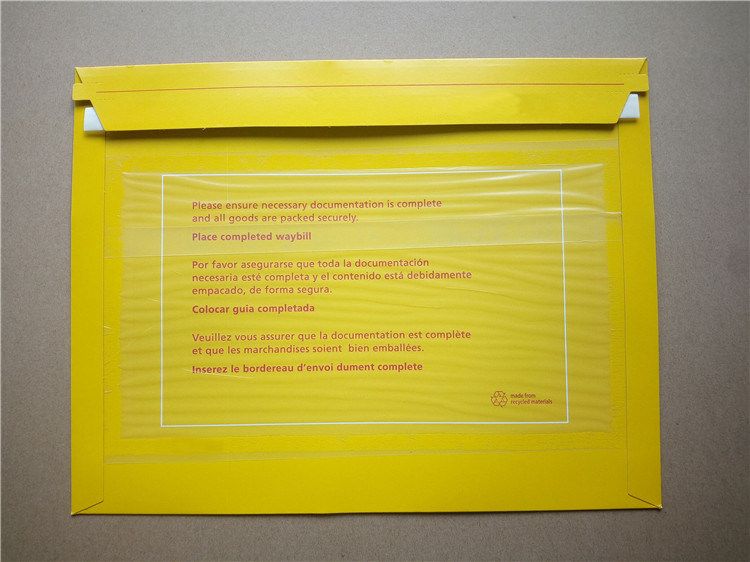 Please ensure necessary documentation is complete
and all goods are packed securely.
Place completed waybill
Por favor asegurarse que toda la documentación
necesaria esté completa y el contenido está debidamente
empacado, de forma segura.
Colocar guia completada
Veuillez vous assurer que la documentation est complète
et que les marchandises soient bien emballées.
Inserez le bordereau d'envoi dument complete
made from
recycled materials